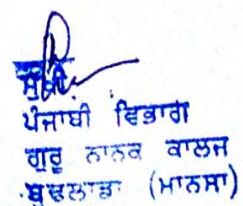 ਮੁਖੀ
ਪੰਜਾਬੀ ਵਿਭਾਗ
ਗੁਰੂ ਨਾਨਕ ਕਾਲਜ
ਬੁਢਲਾਡਾ (ਮਾਨਸਾ)